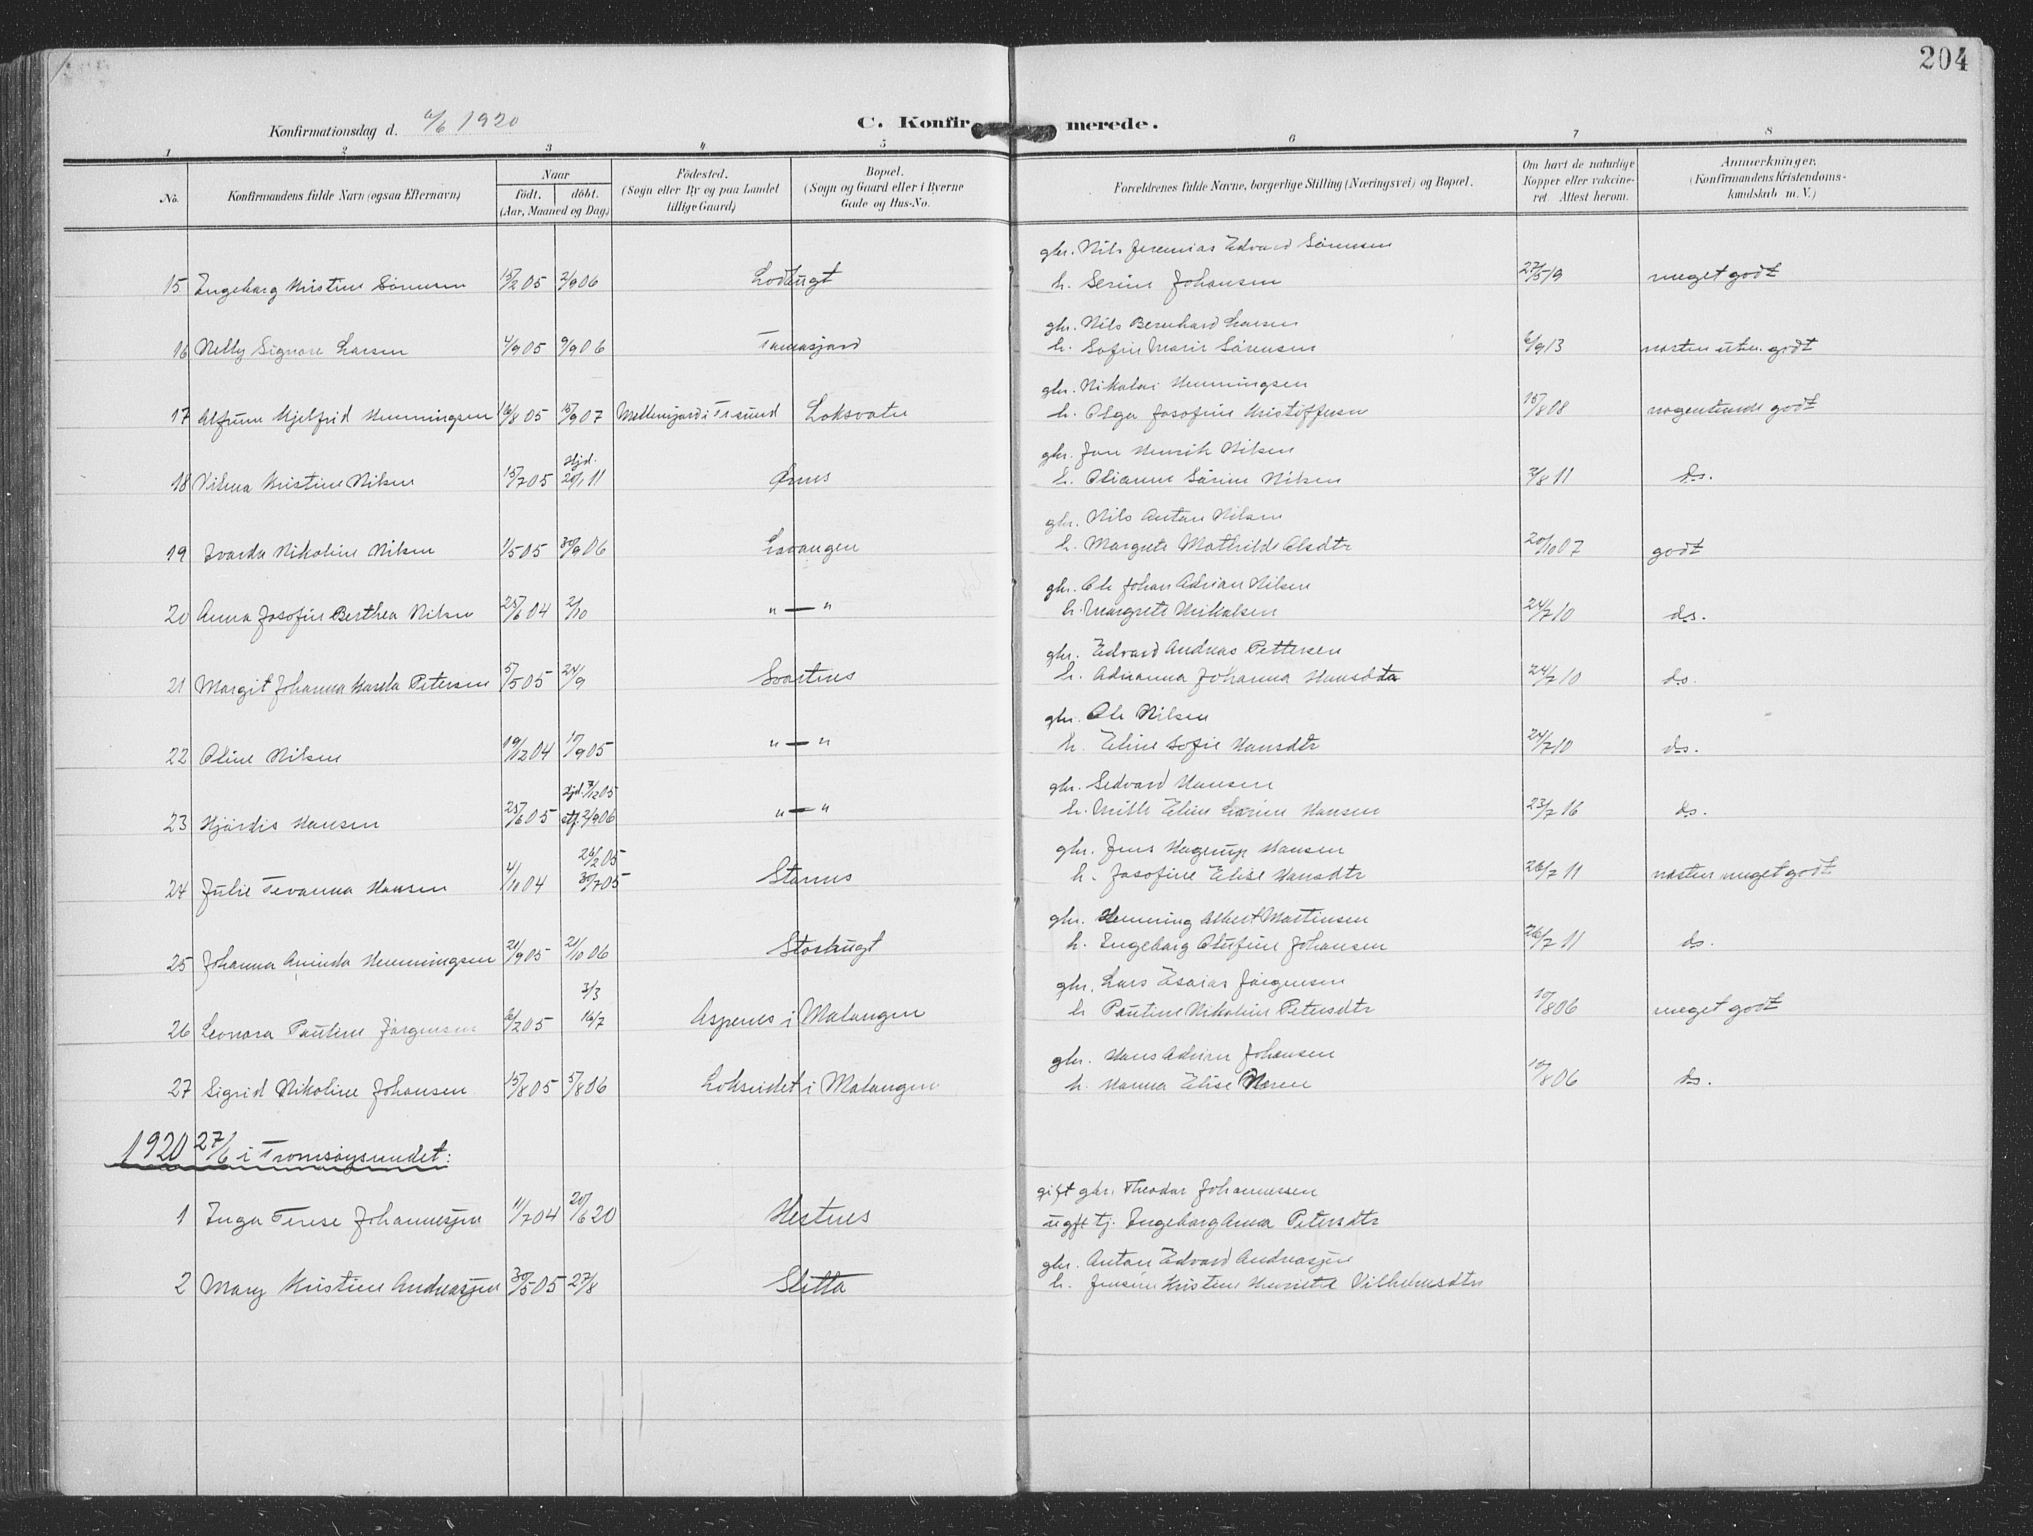 204
Konfirmationsdag d. 6/6 1920
C. Konfirmerede.
1 2 3 4 5 6 7 8
No.
Konfirmandens fulde Navn (ogsaa Efternavn)
Naar
födt. döbt.
(Aar, Maaned og Dag)
Födested.
(Sogn eller By og paa Landet
tillige Gaard)
Bopæl.
(Sogn og Gaard eller i Byerne
Gade og Hus-No.
Forældrenes fulde Navne, borgerlige Stilling (Næringsvei) og Bopæl.
Om havt de naturlige
Kopper eller vakcine-
ret. Attest herom.
Anmærkninger.
(Konfirmandens Kristendoms-
kundskab m. V.)
gbr. Nils Jeremias Edvard Sörensen
15 Ingeborg Kristine Sörensen 15/2 05 2/9 06 h. Serine Johansen 27/5 19 meget godt
gbr. Nils Bernhard Larsen
16 Nelly Signore Larsen 4/9 05 9/9 06 h. Sofie Marie Sörensen 6/9 13 næsten uten. godt
gbr. Nikolai Henningsen
17 Hjelfrid Henningsen 16/8 05 15/9 07 Loksvatn h. Olga Josofine Kristoffersen 15/8 08 nogenlunde godt
gbr. Jon Henrik Nilsen
Hjd.
18 Vilma Kristine Nilsen 15/7 05 20/1 11 h. Olianne Sörine Nilsen 3/8 11 ds.
gbr. Nils Anton Nilsen
19 Ivarda Nikoline Nilsen 1/5 05 30/9 06 Lavangen h. Margrete Mathilde Olsdtr 20/10 07 godt
gbr. Ole Johan Adrian Nilsen
20 Anna Josofine Berthea Nilsen 25/6 04 2/10 " — " h. Margrete Mikalsen 24/7 10 ds.
gbr. Edvard Andreas Pettersen
21 Margit Johanna Petersen 5/5 05 24/9 Svartnes h. Adrianna Johanna Hansdtr 24/7 10 ds.
gbr. Ole Nilsen
22 Oline Nilsen 19/12 04 17/9 05 " — " h. Eline Sofie Hansdtr 24/7 10 ds.
gbr. Sedvard Hansen
Hjd. 3/12 05
23 Hjördis Hansen 25/6 05 stf. 2/9 06 " — " h. Mille Eline Hansen 23/7 16 ds.
gbr. Jens Hagerup Hansen
26/2 05
24 Julie Tevanna Hansen 4/10 04 30/7 05 h. Josofine Elise Hansdtr 26/7 11 næsten meget godt
gbr. Henning Albert Martinsen
25 Johanna Aminda Henningsen 21/9 05 21/10 06 Storbugt h. Ingeborg Olufine Johansen 26/7 11 ds.
gbr. Lars Esaias Jörgensen
3/3
26 Leonora Pauline Jörgensen 6/2 05 16/7 Aspenes i Malangen h. Pauline Nikoline Petersdtr 10/8 06 meget godt
gbr. Hans Adrian Johansen
27 Sigrid Nikoline Johansen 15/8 05 5/8 06 Lokseidet i Malangen h. Hanna Elise 10/8 06 ds.
1920 27/6 i Tromsöysundet:
gift gbr. Theodor Johannessen
1 Inga Terese Johannesjen 11/7 04 20/6 20 Hestnes ugft tj. Ingeborg Anna Petersdtr
gbr. Anton Edvard Andreasjen
2 Mary Kristine Andreasjen 30/5 05 27/8 Sletta h. Jensine Kristine Henriette Vilhelmsdtr